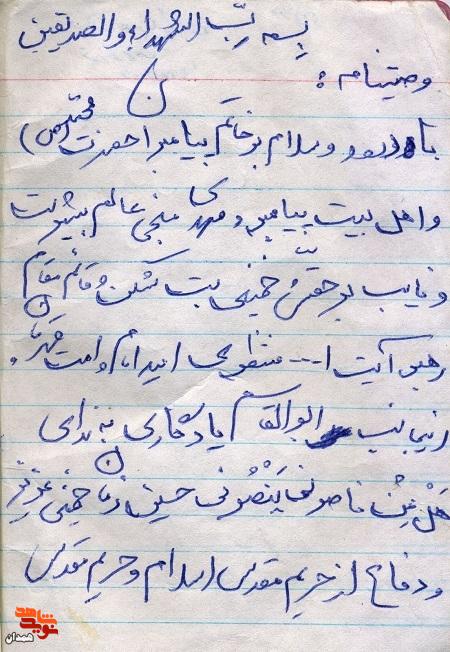 بسم ربّ الشهداء والصدیقین
وصیتنامه :
با درود و سلام بر خاتم پیامبرا حضرت محمد (ص)
و اهل بیت پیامبر و مهدی منجی عالم بشریت
و نایب بر حقش خمینی بت شکن و قائم مقام
رهبر آیت ا... منتظری امید امام و امت
اینجانب ابوالقاسم یادگاری به ندای
هَلْ مِنْ ناصِرٍ یَنْصُرُنی حسین زمان خمینی عزیز
و دفاع از حریم مقدس اسلام و حریم مقدس
شاهد
نوید
همدان